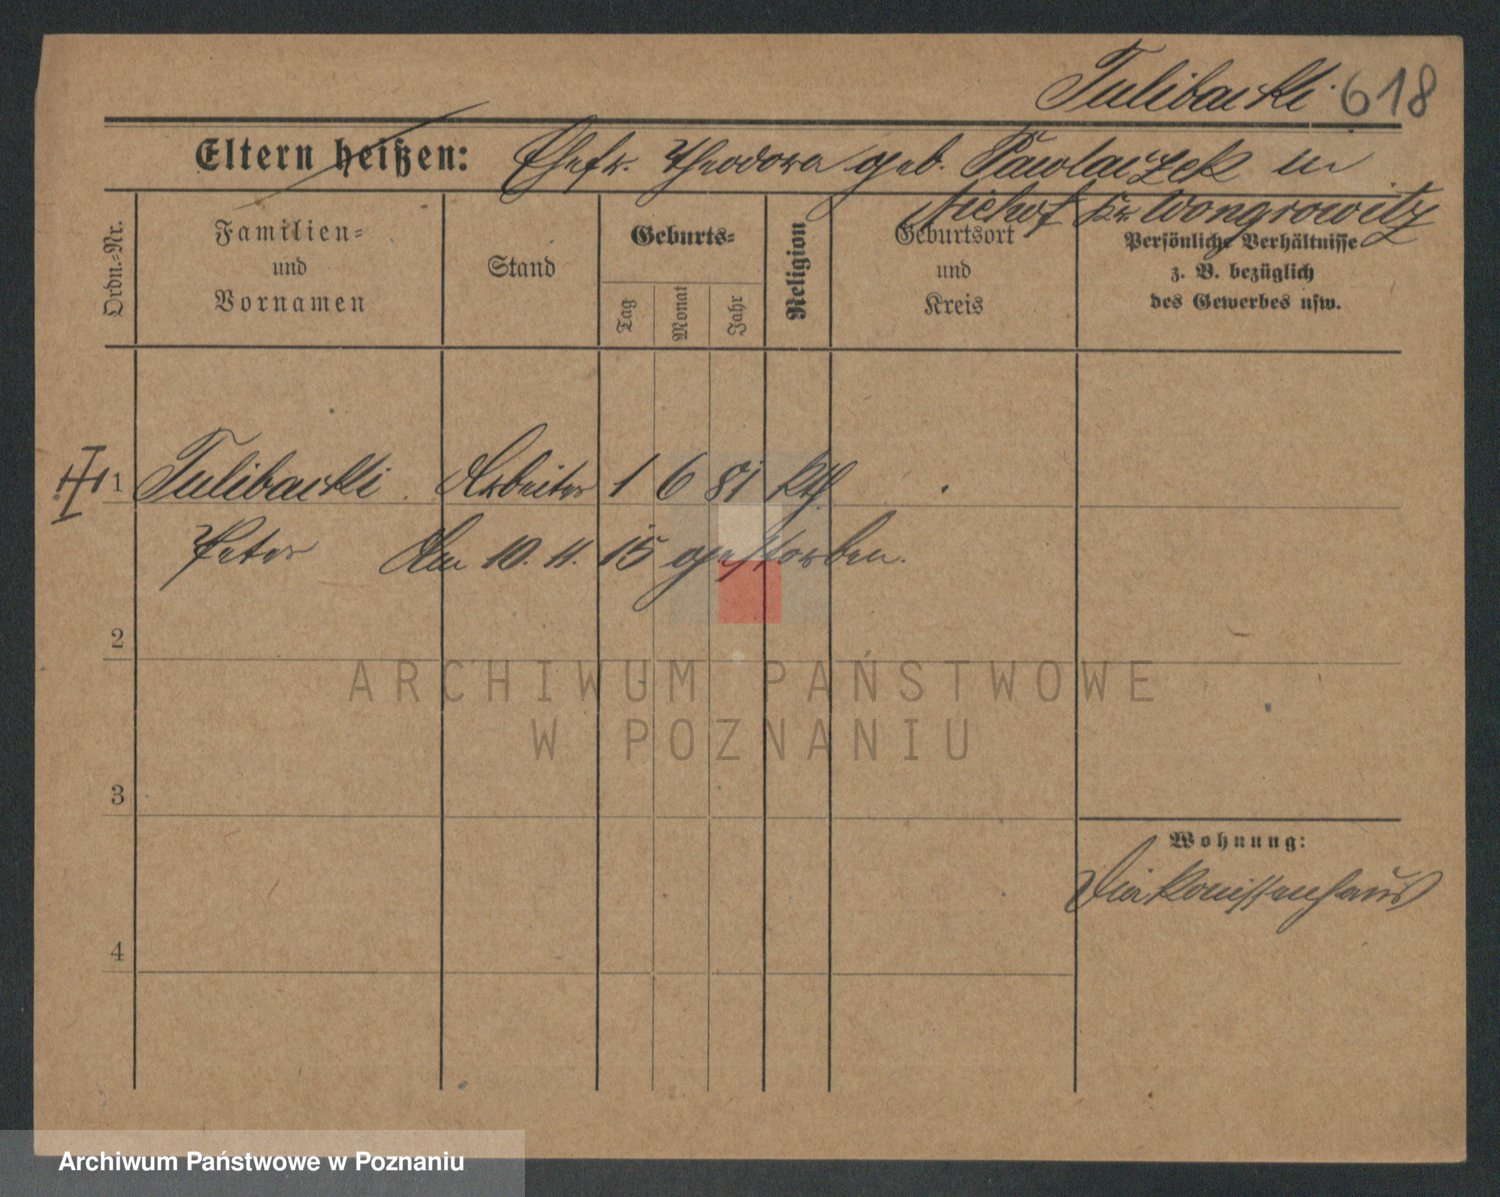 Tulibacki 618
Eltern heißen: Ehefr. Theodora geb. Pawlaczek in
Kr. Wongrowitz
Ordn.-Nr.
Familien-
und
Vornamen
Stand
Geburts-
Tag
Monat
Jahr
Religion
Geburtsort
und
Kreis
Persönliche Verhältnisse
z. B. bezüglich
des Gewerbes usw.
1 Tulibacki Arbeiter 1 6 81 kth.
Peter Am 10. 11. 15 gestorben.
2
ARCHIWUM PAŃSTWOWE
W POZNANIU
3
Wohnung:
Diakonissenhaus
4
Archiwum Państwowe w Poznaniu